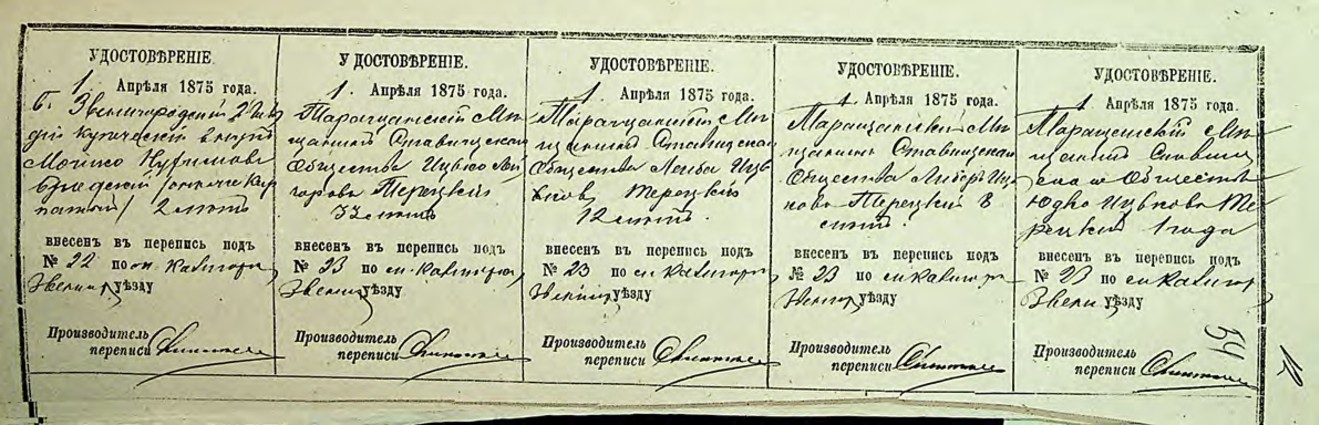 УДОСТОВѢРЕНІЕ.
1. Апрѣля 1875 года.
Звенигородскій
Мошко
2 лѣтъ
внесенъ въ перепись подъ
№ 22 по м. Калигорк
Звениг уѣзду
Производитель
переписи
УДОСТОВѢРЕНІЕ.
1. Апрѣля 1875 года.
Таращанскій Мѣ
щанинъ Ставищскаго
Общества Ицько Лей
Терецкій
33 лѣтъ
внесенъ въ перепись подъ
№ 23 по м. Калигорк
Звениг уѣзду
Производитель
переписи
УДОСТОВѢРЕНІЕ.
1 Апрѣля 1875 года.
Таращанскій Мѣ
щанинъ Ставищскаго
Общества Лейба Ицъ
ковъ Терецкій
12 лѣтъ.
внесенъ въ перепись подъ
№ 23 по м Калигорк
Звениг уѣзду
Производитель
переписи
УДОСТОВѢРЕНІЕ.
1 Апрѣля 1875 года.
Таращанскій Мѣ
щанинъ Ставищскаго
Общества Либоръ Иц
ковъ Терецкій 8
лѣтъ.
внесенъ въ перепись подъ
№ 23 по м Калигорк
Звениг уѣзду
Производитель
переписи
УДОСТОВѢРЕНІЕ.
1 Апрѣля 1875 года.
Таращанскій Мѣ
щанинъ Ставищ
скаго Общества
Юдко Ицьковъ Те
рецкій 1 года
внесенъ въ перепись подъ
№ 23 по м Калигор
Звени уѣзду
Производитель
переписи
54